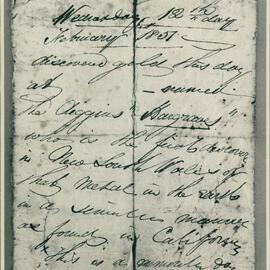 Wednesday 12th day
February 1851
discovered gold this day
at — named
The "Hargraves"
who is the first discoverer
in New South Wales of
that metal in the earth
in a similar manner
as found in California
This is a memorable day